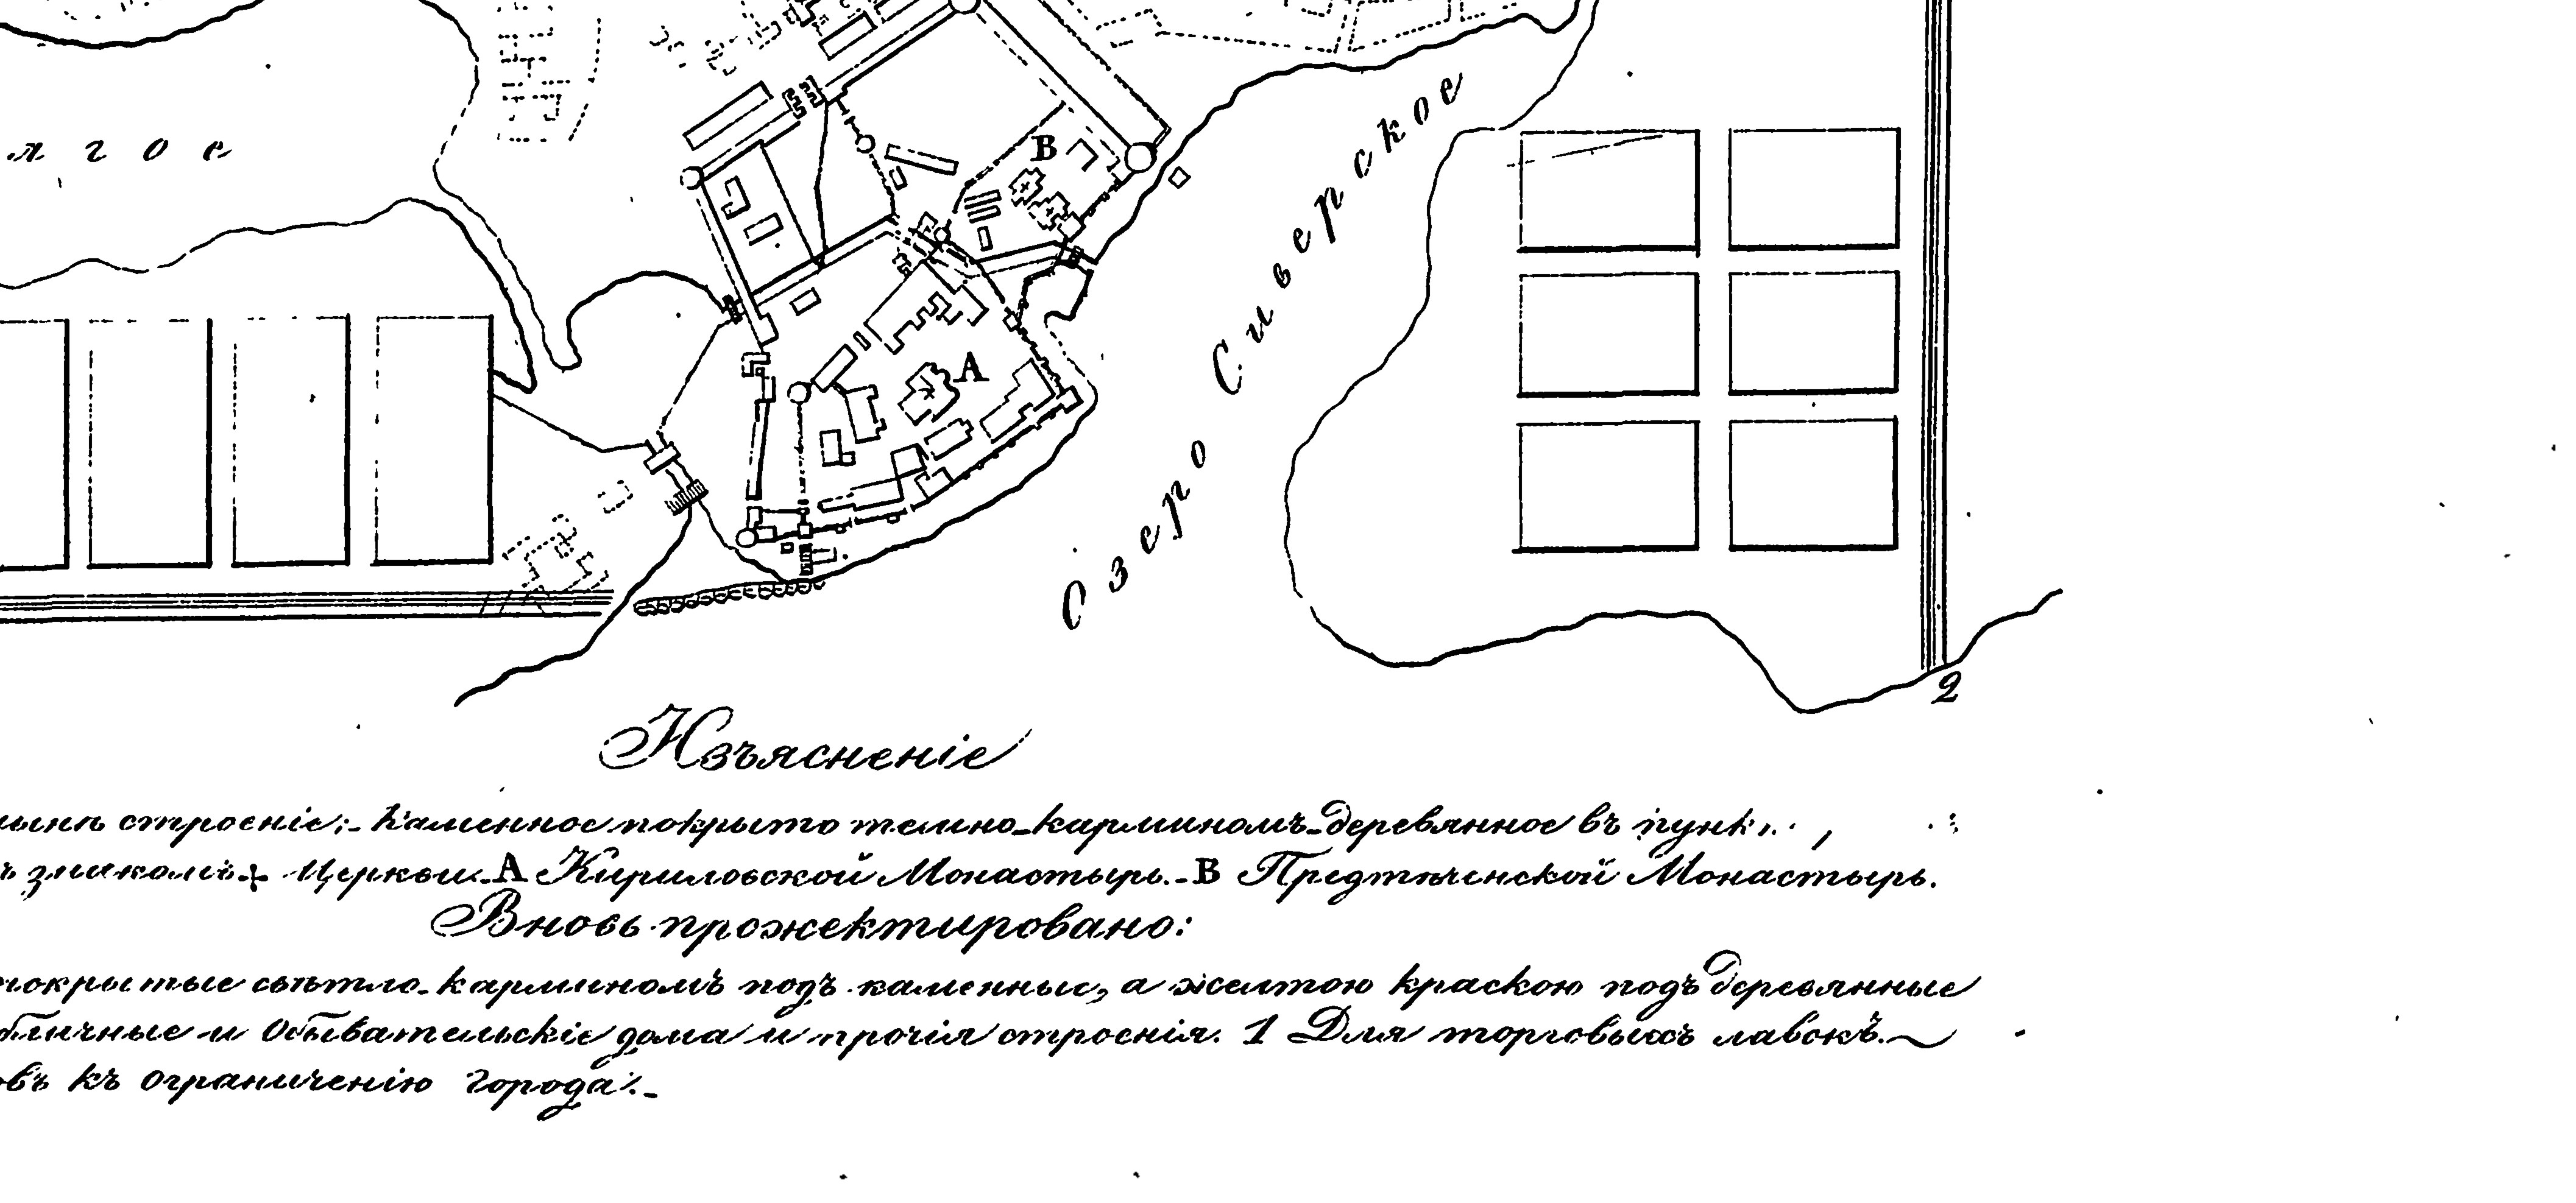 лгое
B
A
Озеро Сиверское
2
Изъясненіе
строеніе:- Каменное покрыто темно-карминомъ-деревянное въ
знакомъ + Церкви. A Кириловской Монастырь.- B Предтѣченской Монастырь.
Вновь прожектировано:
покрытые свѣтло-карминомъ подъ каменные, а желтою краскою подъ деревянные
бличные и Обывательскіе дома и прочія строенія. 1 Для торговыхъ лавокъ.
овъ къ ограниченію города.-